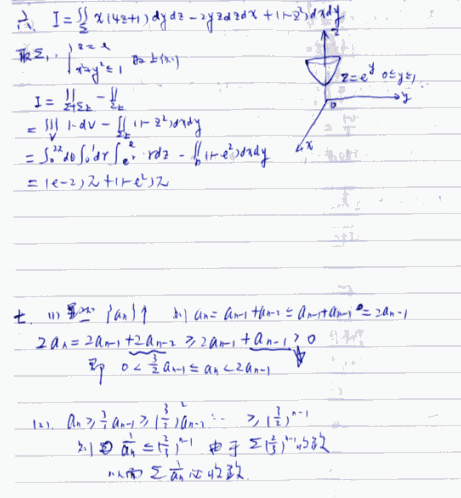 六. I = ∬_Σ x(4z+1)dydz - 2yzdzdx + (1-z²)dxdy
取Σ₁: { z = e
x²+y² ≤ 1
z
z=e^y 0≤y≤1
I = ∬_{Σ+Σ₂} - ∬_{Σ₂}
= ∭_V 1·dV - ∬_{Σ₂} (1-z²)dxdy
y
0
= ∫₀^{2π}dθ∫₀¹dr∫_{e^r}^{e} rdz - ∬_D (1-e²)dxdy
x
= (e-2)π + (1-e²)π
七. (1) {aₙ}↑ 则 aₙ = aₙ₋₁+aₙ₋₂ ≤ aₙ₋₁+aₙ₋₁ = 2aₙ₋₁
2aₙ = 2aₙ₋₁+2aₙ₋₂ ≥ 2aₙ₋₁+aₙ₋₁ > 0
即 0 < 3/2 aₙ₋₁ ≤ aₙ < 2aₙ₋₁
(2). aₙ ≥ 3/2 aₙ₋₁ ≥ (3/2)² aₙ₋₂ ... ≥ (3/2)ⁿ⁻¹
则 1/aₙ ≤ (2/3)ⁿ⁻¹ 由于 Σ(2/3)ⁿ⁻¹收敛
从而 Σ 1/aₙ 也收敛.